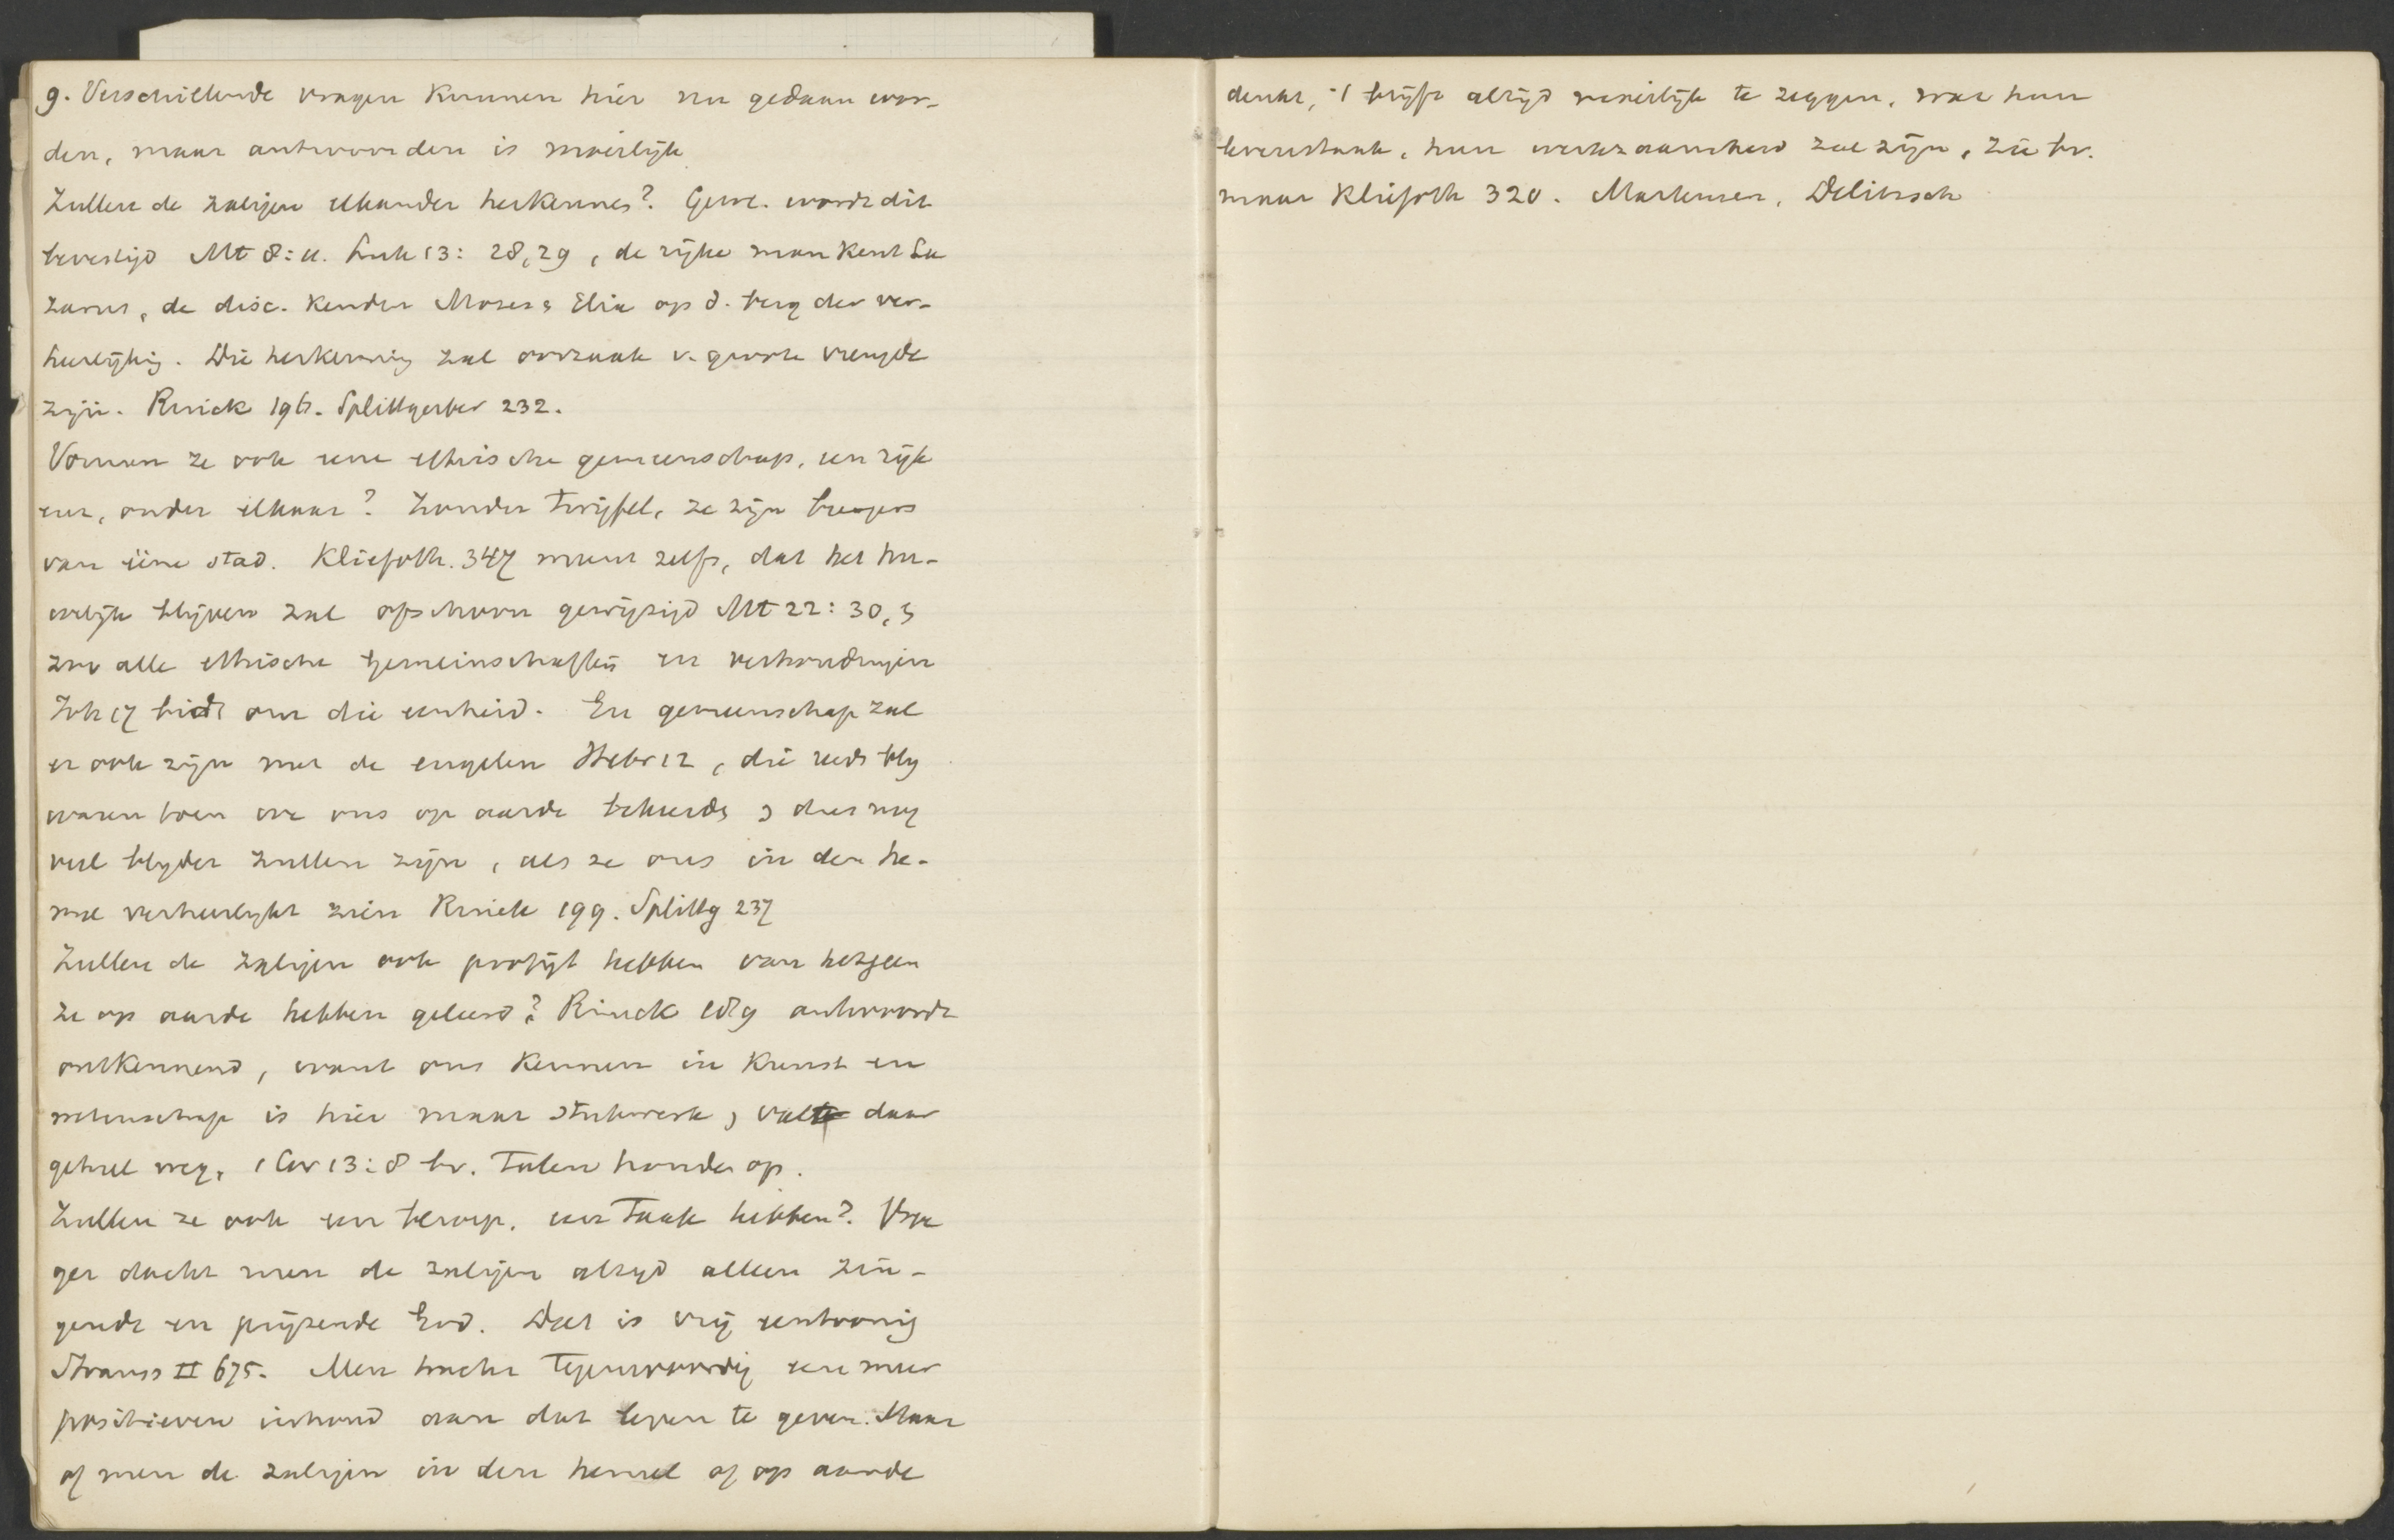 9. Verschillende vragen kunnen hier nu gedaan wor-
den, maar antwoorden is moeilijk
Zullen de zaligen elkander herkennen? Gew. wordt dit
bevestigd Mt 8:11. Luk 13: 28,29, de rijke man kent La
zarus, de disc. kenden Mozes & Elia op d. berg der ver-
heerlijking. Die herkenning zal oorzaak v. groote vreugde
zijn. Rinck 196. Splittgerber 232.
Vormen ze ook eene ethische gemeenschap, een rijk
enz, onder elkaar? Zonder twijfel, ze zijn burgers
van ééne stad. Kliefoth. 347 meent zelfs, dat het hu-
welijk blijven zal ofschoon gewijzigd Mt 22: 30, &
zoo alle ethische Gemeinschaften en verhoudingen
Joh 17 bidt om die eenheid. En gemeenschap zal
er ook zijn met de engelen Hebr 12, die reeds bly
waren toen we ons op aarde bekeerden & dus nog
veel blyder zullen zijn, als ze ons in den he-
mel verheerlykt zien Rinck 199. Splittg 237
Zullen de zaligen ook profijt hebben van hetgeen
ze op aarde hebben geleerd? Rinck 189 antwoordt
ontkennend, want ons kennen in kunst en
wetenschap is hier maar stukwerk & valt daar
geheel weg, 1 Cor 13:8 bv. Talen houden op.
Zullen ze ook een beroep, een taak hebben? Vroe
ger dacht men de zaligen altyd alleen zin-
gende en prijzende God. Dat is vrij eentoonig
Strauss II 675. Men tracht tegenwoordig een meer
positieven inhoud aan dat leven te geven. Maar
of men de zaligen in den hemel of op aarde
denkt, 't blijft altijd moeielijk te zeggen, wat hun
levenstaak, hun werkzaamheid zal zijn, zie bv.
maar Kliefoth 320. Martensen, Delitzsch